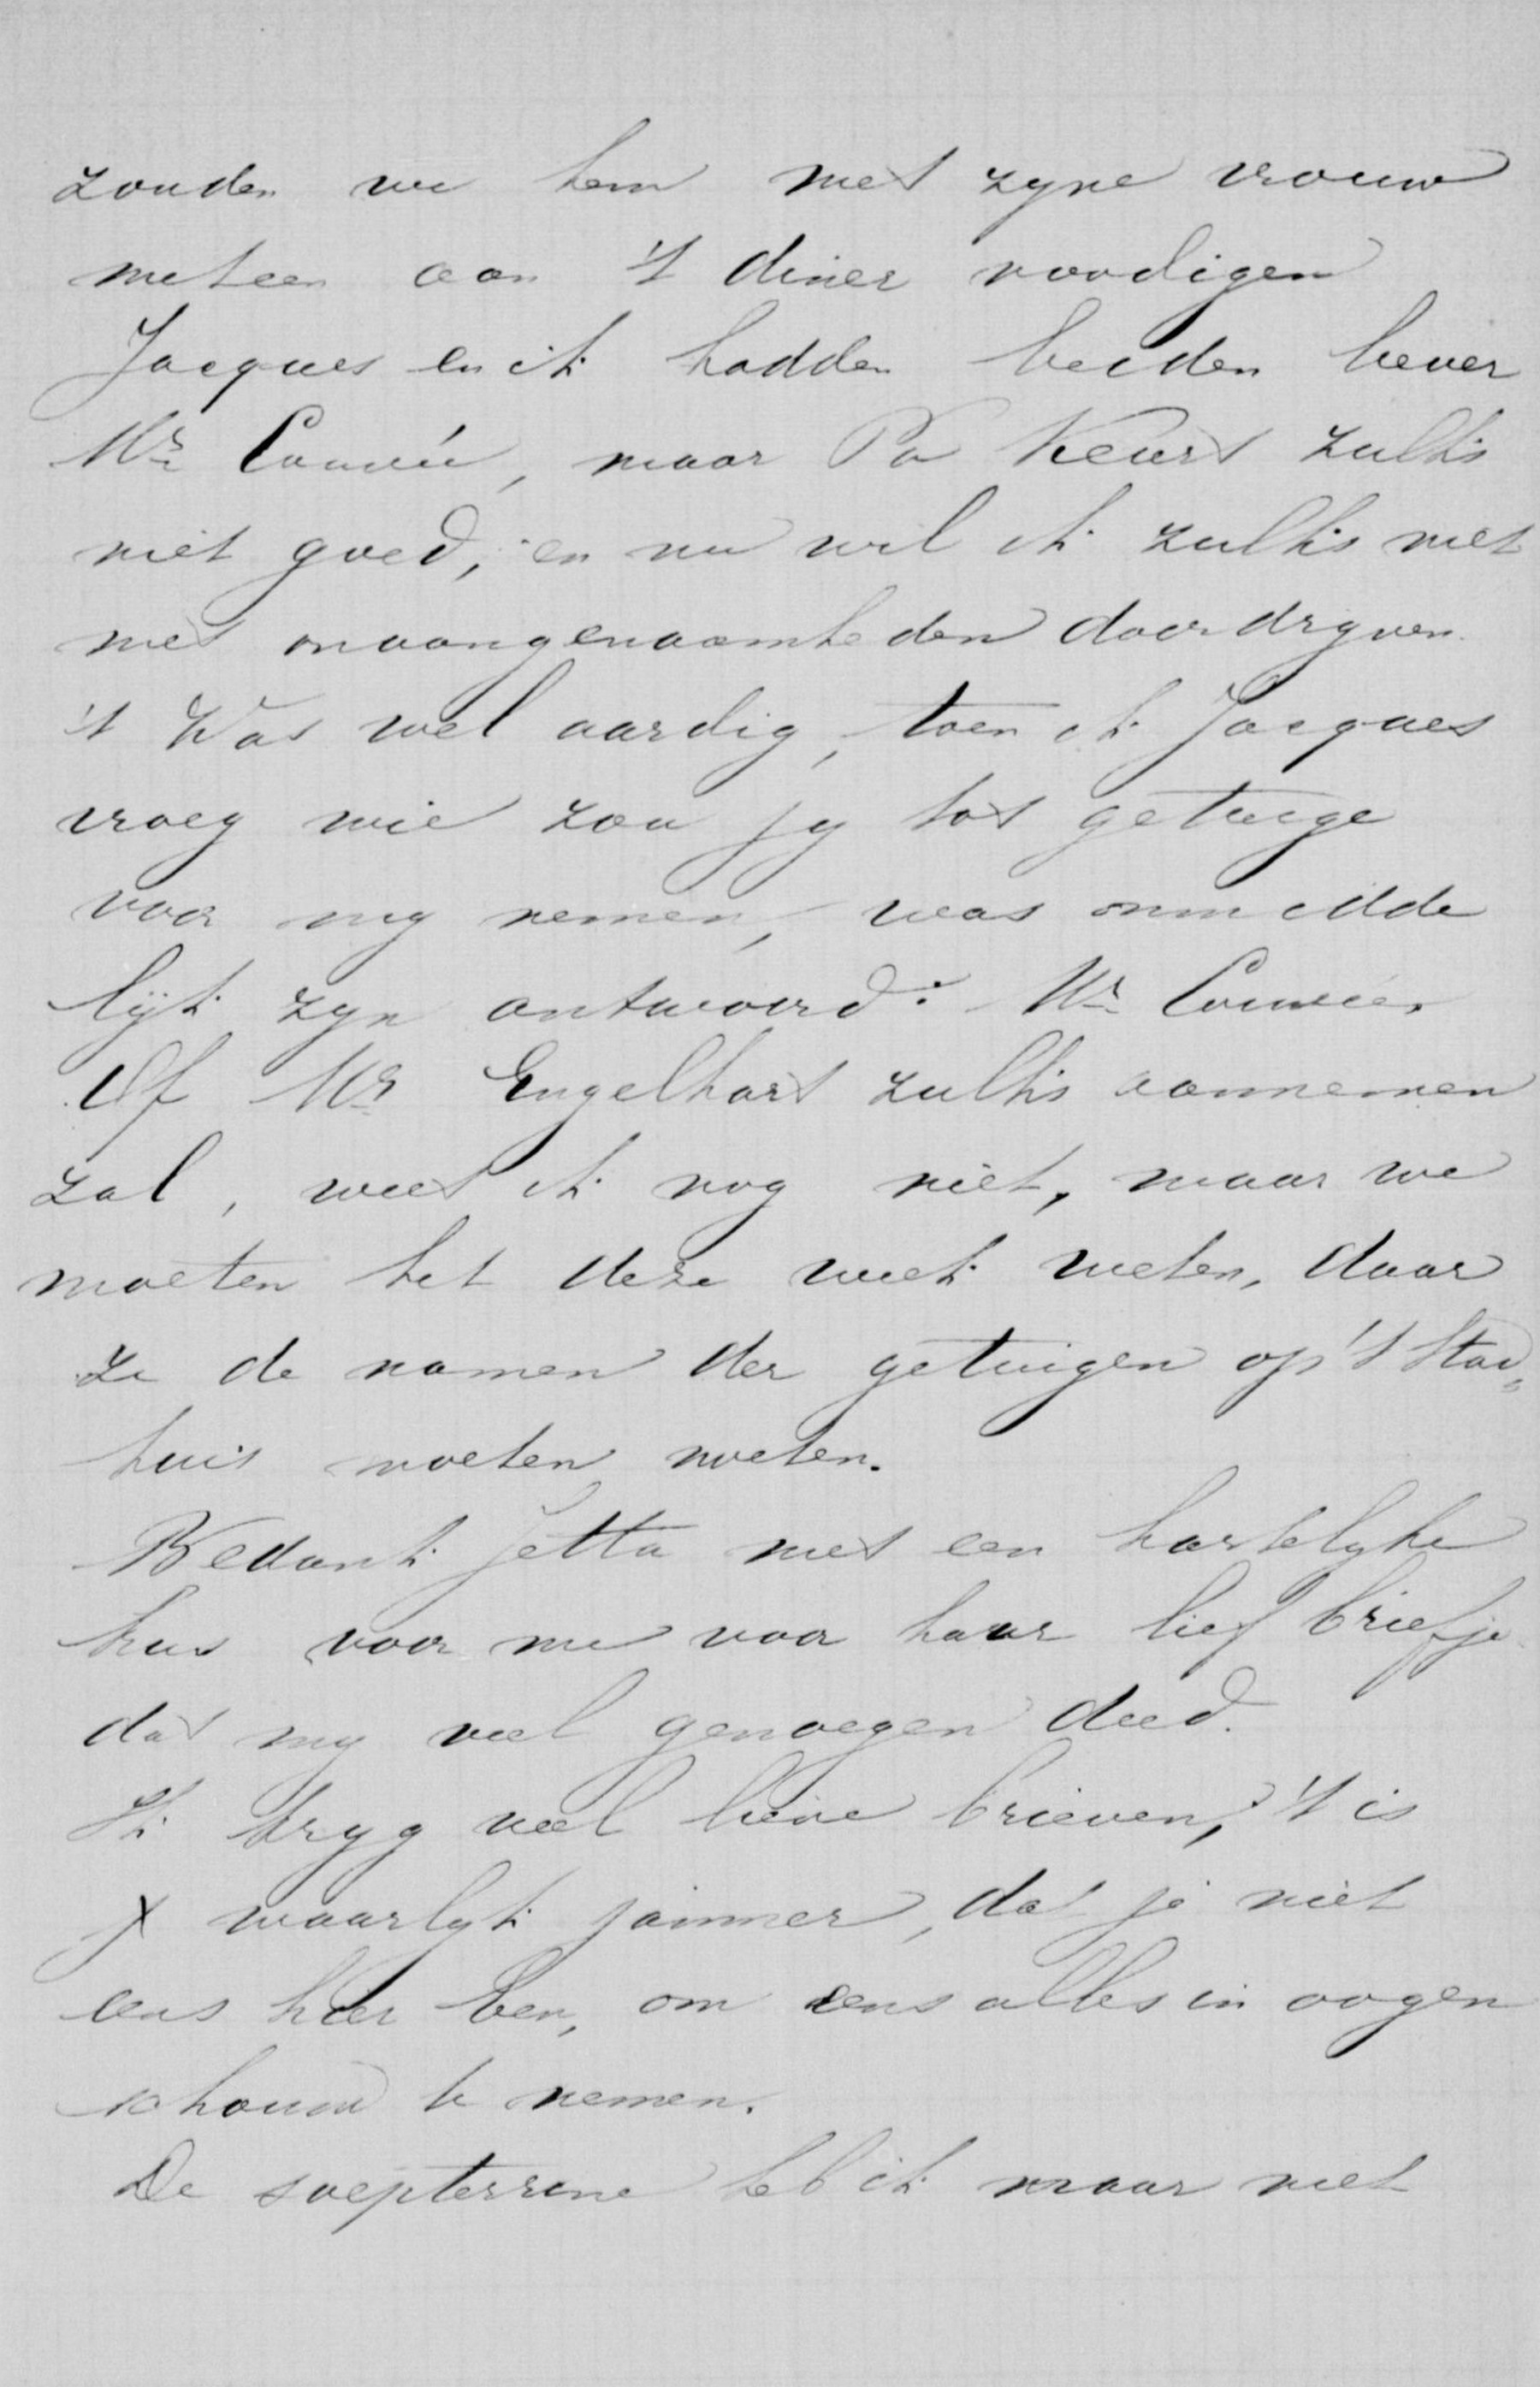 zouden we hem met zyne vrouw
meteen aan 't diner noodigen
Jacques en ik hadden beiden liever
Mr Couvée, maar Pa keurt zulks
niet goed, en nu wil ik zulks niet
met onaangenaamheden doordryven.
't Was wel aardig, toen ik Jacques
vroeg wie zou jy tot getuige
voor my nemen, was onmidde
lijk zyn antwoord: Mr Couvée.
Of Mr Engelhart zulks aannemen
zal, weet ik nog niet, maar we
moeten het deze week weten, daar
ze de namen der getuigen op 't Stad„
huis moeten weten.
Bedank Jetta met een hartelyke
kus voor me voor haar lief briefje
dat my veel genoegen deed.
Ik kryg veel lieve brieven, 't is
waarlyk jammer, dat je niet
eens hier ben, om eens alles in oogen
schouw te nemen.
De soepterrine heb ik maar niet